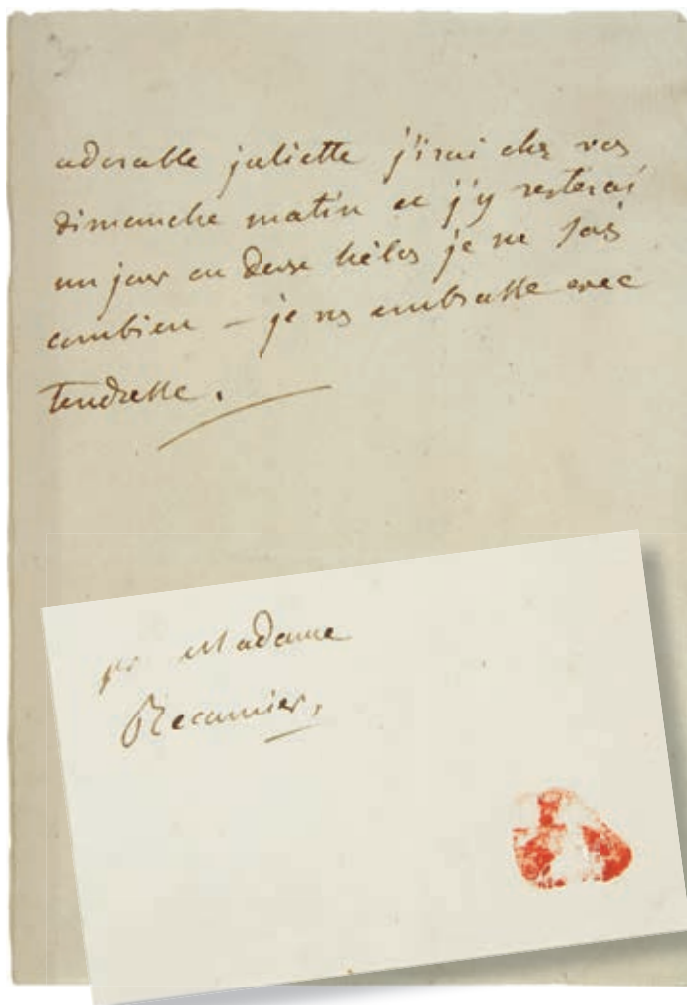 adorable juliette j'irai chez vos
dimanche matin et j'y resterai
un jour ou deux hélas je ne sais
combien – je vs embrasse avec
tendresse.
pr Madame
Recamier,